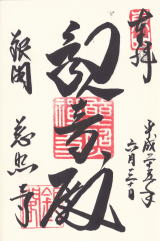 奉拝
平成二十五年
六月三十日
観音殿
銀閣
慈照寺